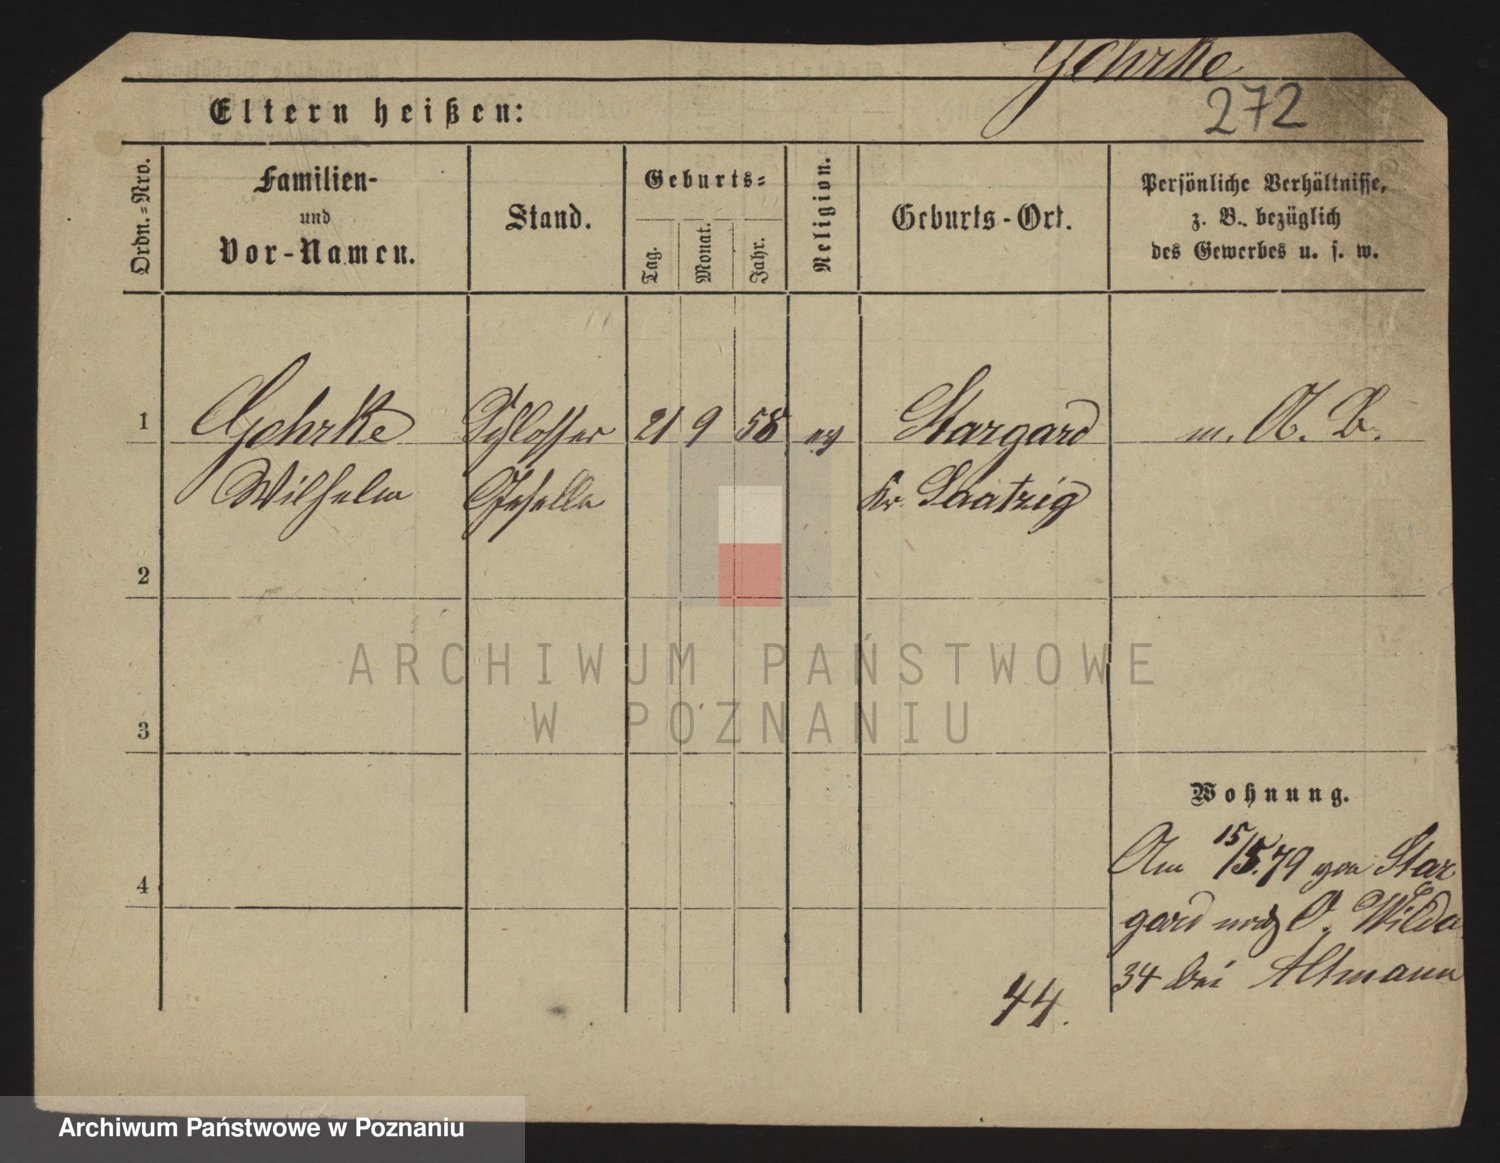 Gohrke
272
Eltern heißen:
Ordn.-Nro.
Familien-
und
Vor-Namen.
Stand.
Geburts-
Tag.
Monat.
Jahr.
Religion.
Geburts-Ort.
Persönliche Verhältnisse,
z. B. bezüglich
des Gewerbes u. s. w.
1 Gohrke Schlosser 21 9 58 ev Stargard m. A. B.
Wilhelm Geselle Kr. Saatzig
2
3
4
Wohnung.
Am 15/5.79 von Star
gard nach O. Wilda
34 bei Altmann
44.
ARCHIWUM PAŃSTWOWE
W POZNANIU
Archiwum Państwowe w Poznaniu